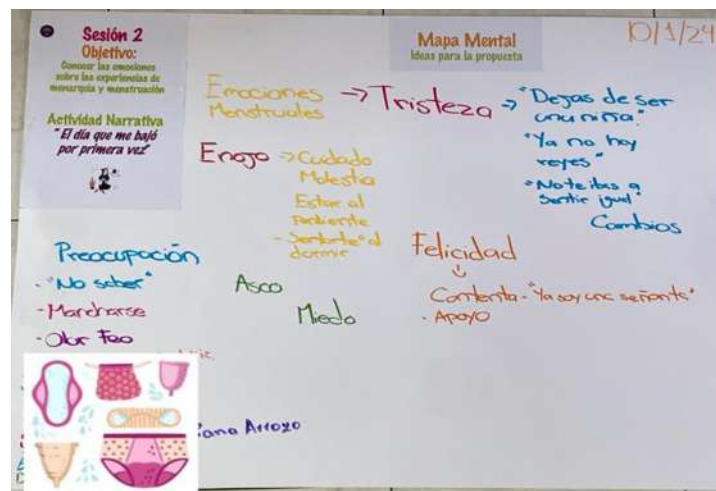 Sesión 2
Objetivo:
Conocer las emociones
sobre las experiencias de
menarquia y menstruación
Actividad Narrativa
"El día que me bajó
por primera vez"
Mapa Mental
Ideas para la propuesta
10/1/24
Emociones
Menstruales
→ Tristeza →
"Dejas de ser
una niña"
"Ya no hay
reyes"
"No te ibas a
sentir igual"
Cambios
Enojo → Cuidado
Molestia
Estar al
pendiente
- Sentirte al
dormir
Preocupación
- "No saber"
- Mancharse
- Olor Feo
Asco
Miedo
Felicidad
Contenta - "Ya soy una señorita"
- Apoyo
Arroyo